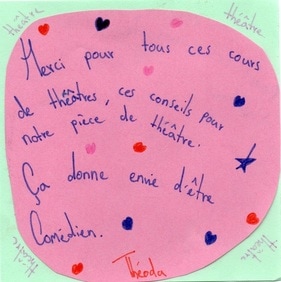 théâtre
théâtre
Merci pour tous ces cours
de théâtres, ces conseils pour
notre pièce de théâtre.
Ça donne envie d'être
Comédien.
théâtre
théâtre
Théoda